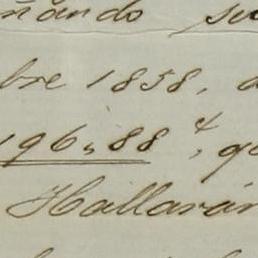 ñando su
bre 1858, a
196,,88 4, qu
Hallarán